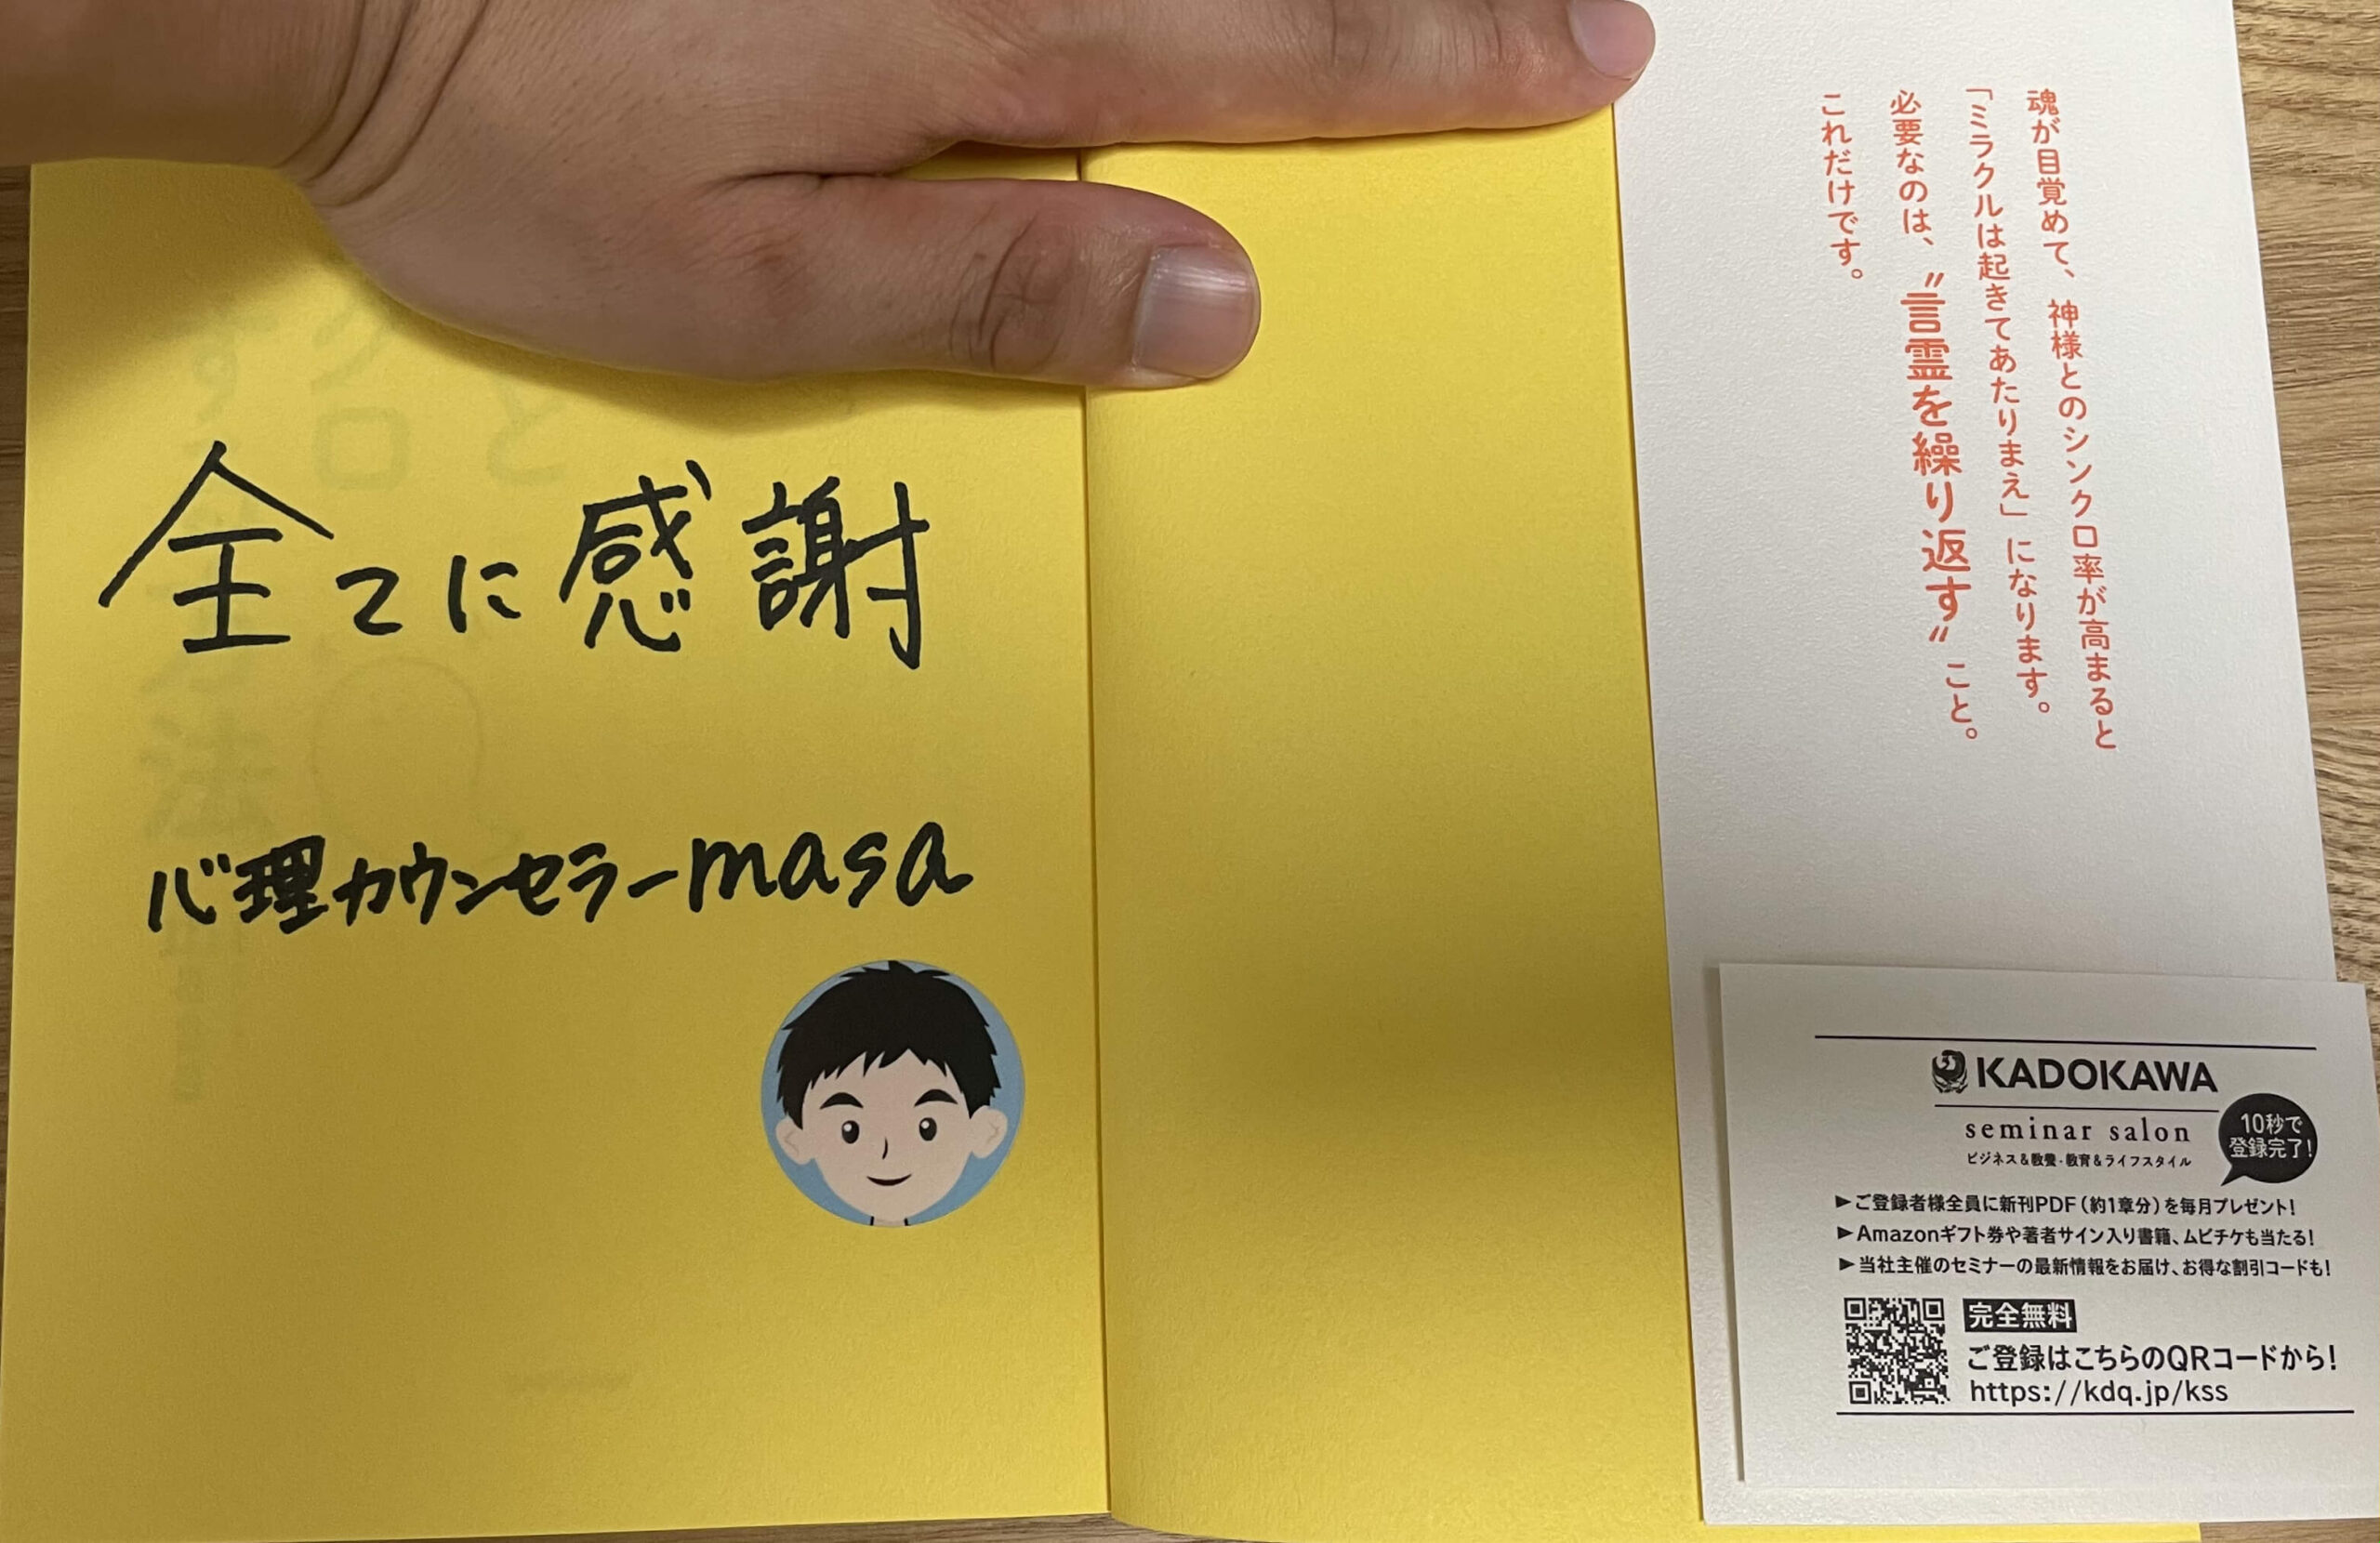 全てに感謝
心理カウンセラーmasa
魂が目覚めて、神様とのシンクロ率が高まると
「ミラクルは起きてあたりまえ」になります。
必要なのは、〝言霊を繰り返す〟こと。
これだけです。
KADOKAWA
seminar salon
ビジネス&教養・教育&ライフスタイル
10秒で
登録完了!
▶ご登録者様全員に新刊PDF(約1章分)を毎月プレゼント!
▶Amazonギフト券や著者サイン入り書籍、ムビチケも当たる!
▶当社主催のセミナーの最新情報をお届け、お得な割引コードも!
完全無料
ご登録はこちらのQRコードから!
https://kdq.jp/kss